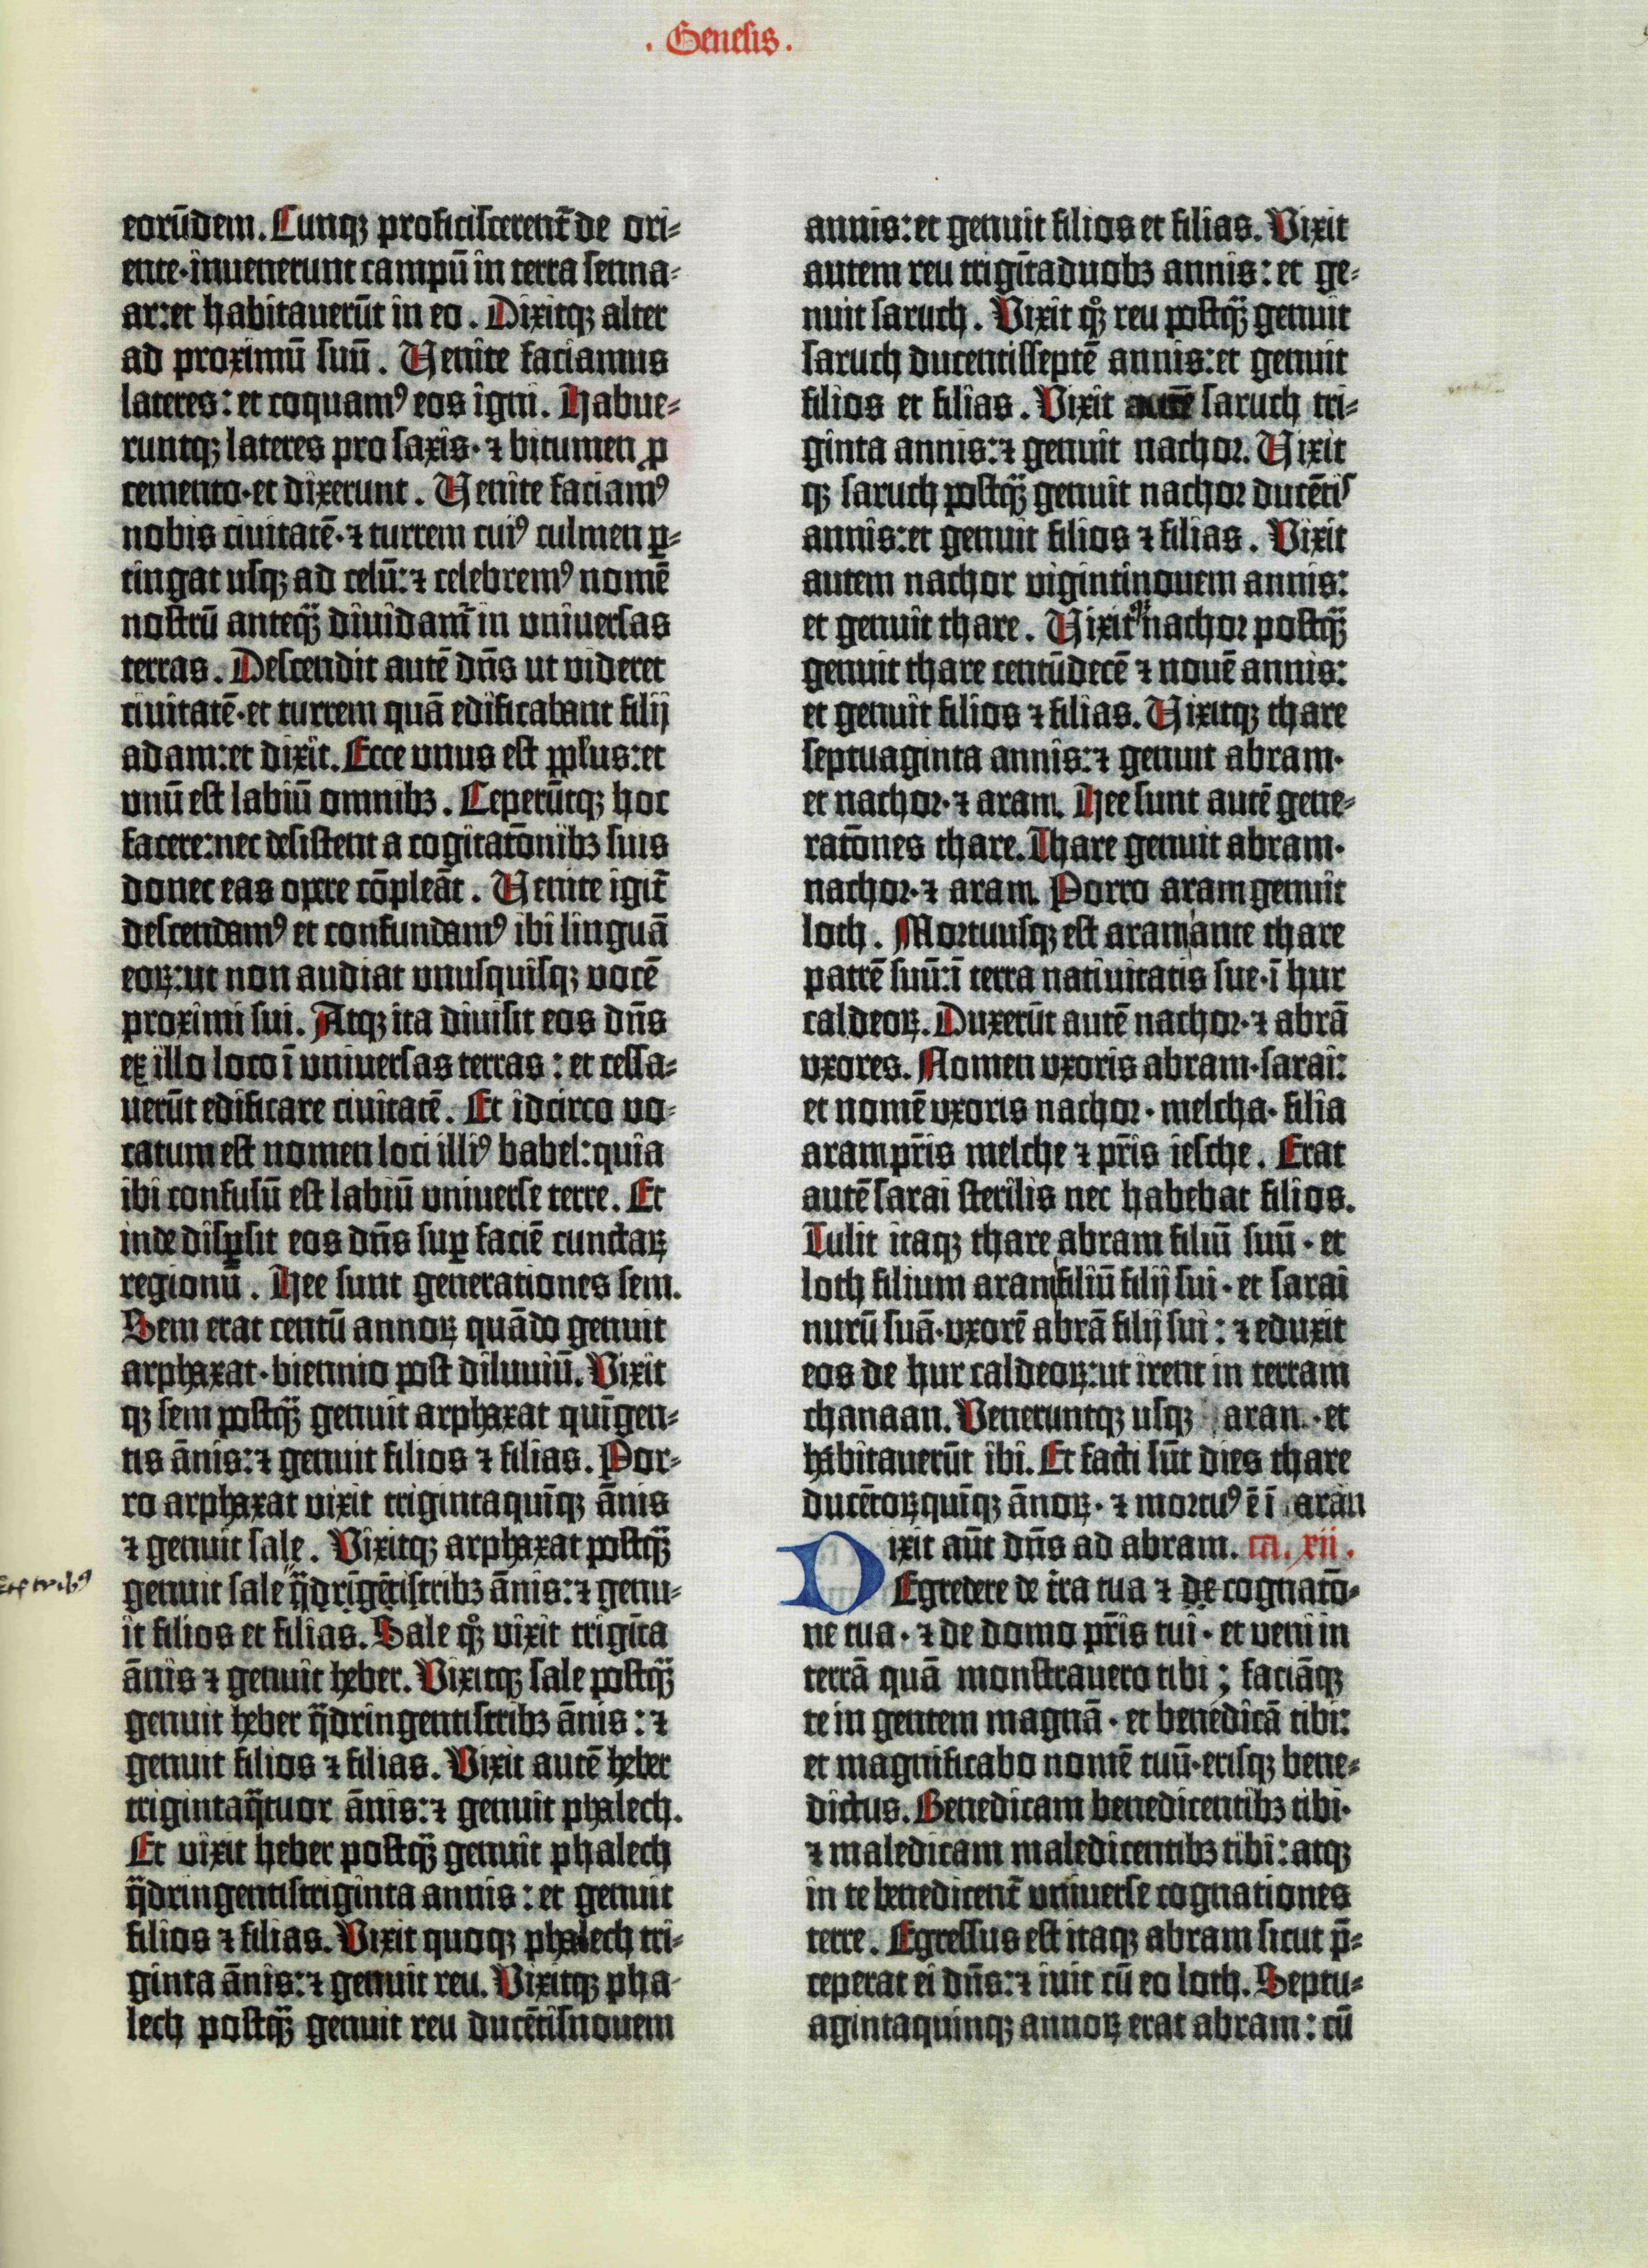 . Genesis .
eorūdem. Cunqꝫ proficiscerent᷑ de ori-
ente·invenerunt campū in terra senna-
ar:et habitaverūt in eo . Dixitqꝫ alter
ad proximū suū . Venite faciamus
lateres: et coquamꝰ eos igni. Habue-
runtqꝫ lateres pro saxis·⁊ bitumen ꝓ
cemento·et dixerunt . Venite faciamꝰ
nobis civitatē·⁊ turrem cuiꝰ culmen ꝑ-
tingat usqꝫ ad celū:⁊ celebremꝰ nomē
nostrū anteqᷓ dividam᷑ in universas
terras . Descendit autē dn̄s ut videret
civitatē·et turrem quā edificabant filij
adam:et dixit. Ecce unus est pp̄lus:et
unū est labiū omnibꝫ . Ceperūtqꝫ hoc
facere:nec desistent a cogitatōnibꝫ suis
donec eas opere cōpleāt . Venite igit᷑
descendamꝰ et confundamꝰ ibi linguā
eoꝝ:ut non audiat unusquisqꝫ vocē
proximi sui. Atqꝫ ita divisit eos dn̄s
ex illo loco ī universas terras : et cessa-
verūt edificare civitatē . Et idcirco vo-
catum est nomen loci illiꝰ babel:quia
ibi confusū est labiū universe terre . Et
inde disꝑsit eos dn̄s suꝑ faciē cunctaꝝ
regionū . Hee sunt generationes sem.
Sem erat centū annoꝝ quādo genuit
arphaxat·biennio post diluviū. Vixit
qꝫ sem postqᷓ genuit arphaxat quīgen-
tis ānis:⁊ genuit filios ⁊ filias. Por-
ro arphaxat vixit trigintaquīqꝫ ānis
⁊ genuit sale . Vixitqꝫ arphaxat postqᷓ
genuit sale qᷓdrīgētistribꝫ ānis:⁊ genu-
it filios et filias. Sale qꝙ vixit trigīta
ānis ⁊ genuit heber. Vixitqꝫ sale postqᷓ
genuit heber qᷓdringentistribꝫ ānis : ⁊
genuit filios ⁊ filias. Vixit autē heber
trigintaqᷓtuor ānis:⁊ genuit phalech.
Et vixit heber postqᷓ genuit phalech
qᷓdringentistriginta annis : et genuit
filios ⁊ filias. Vixit quoqꝫ phalech tri-
ginta ānis:⁊ genuit reu. Vixitqꝫ pha-
lech postqᷓ genuit reu ducētisnovem
annis:et genuit filios et filias. Vixit
autem reu trigītaduobꝫ annis: et ge-
nuit saruch . Vixit qꝙ reu postqᷓ genuit
saruch ducentisseptē annis:et genuit
filios et filias . Vixit autē saruch tri-
ginta annis:⁊ genuit nachor. Vixit
qꝫ saruch postqᷓ genuit nachor ducētis
annis:et genuit filios ⁊ filias . Vixit
autem nachor vigintinovem annis:
et genuit thare . Vixit nachor postqᷓ
genuit thare centūdecē ⁊ novē annis:
et genuit filios ⁊ filias. Vixitqꝫ thare
septuaginta annis:⁊ genuit abram·
et nachor·⁊ aram. Hee sunt autē gene-
ratōnes thare. Thare genuit abram·
nachor·⁊ aram. Porro aram genuit
loth . Mortuusqꝫ est aram ante thare
patrē suū:ī terra nativitatis sue·ī hur
caldeoꝝ. Duxerūt autē nachor·⁊ abrā
uxores. Nomen uxoris abram·sarai:
et nomē uxoris nachor · melcha· filia
aram pr̄is melche ⁊ pr̄is iesche . Erat
autē sarai sterilis nec habebat filios.
Tulit itaqꝫ thare abram filiū suū · et
loth filium aram filiū filij sui · et sarai
nurū suā·uxorē abrā filij sui : ⁊ eduxit
eos de hur caldeoꝝ:ut irent in terram
chanaan. Veneruntqꝫ usqꝫ aran · et
habitaverūt ibi. Et facti sūt dies thare
ducētoꝝquīqꝫ ānoꝝ · ⁊ mortuꝰ ē ī aran
Dixit aūt dn̄s ad abram. ca. xii .
Egredere de t̄ra tua ⁊ de cognatō-
ne tua · ⁊ de domo pr̄is tui · et veni in
terrā quā monstravero tibi ; faciāqꝫ
te in gentem magnā · et benedicā tibi:
et magnificabo nomē tuū·erisqꝫ bene-
dictus. Benedicam benedicentibꝫ tibi·
⁊ maledicam maledicentibꝫ tibi: atqꝫ
in te benedicent᷑ universe cognationes
terre . Egressus est itaqꝫ abram sicut p̄-
ceperat ei dn̄s:⁊ ivit cū eo loth. Septu-
agintaquinqꝫ annoꝝ erat abram : cū